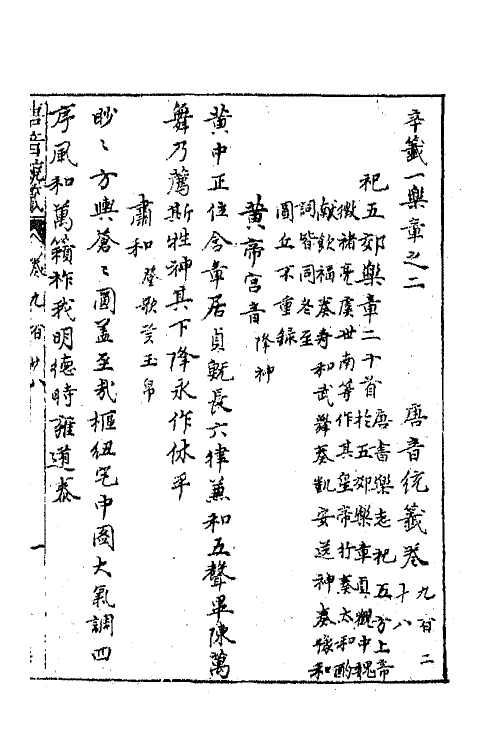 辛籤一樂章之二　唐音統籤卷九百二十八
祀五郊樂章二十首唐書樂志祀五方上帝
於五郊樂章貞觀中魏
徵褚亮虞世南等作其皇帝行奏太和酌
獻飲福奏壽和武舞奏凱安送神奏豫和
詞皆同冬至
圜丘不重錄
黃帝宮音降神
黃中正位含章居貞既長六律兼和五聲畢陳萬
舞乃薦斯牲神其下降永作休平
肅和登歌奠玉帛
眇〻方輿蒼〻圜蓋至哉樞紐宅中圖大氣調四
序風和萬籟祚我明德時雍道泰
唐音統籤